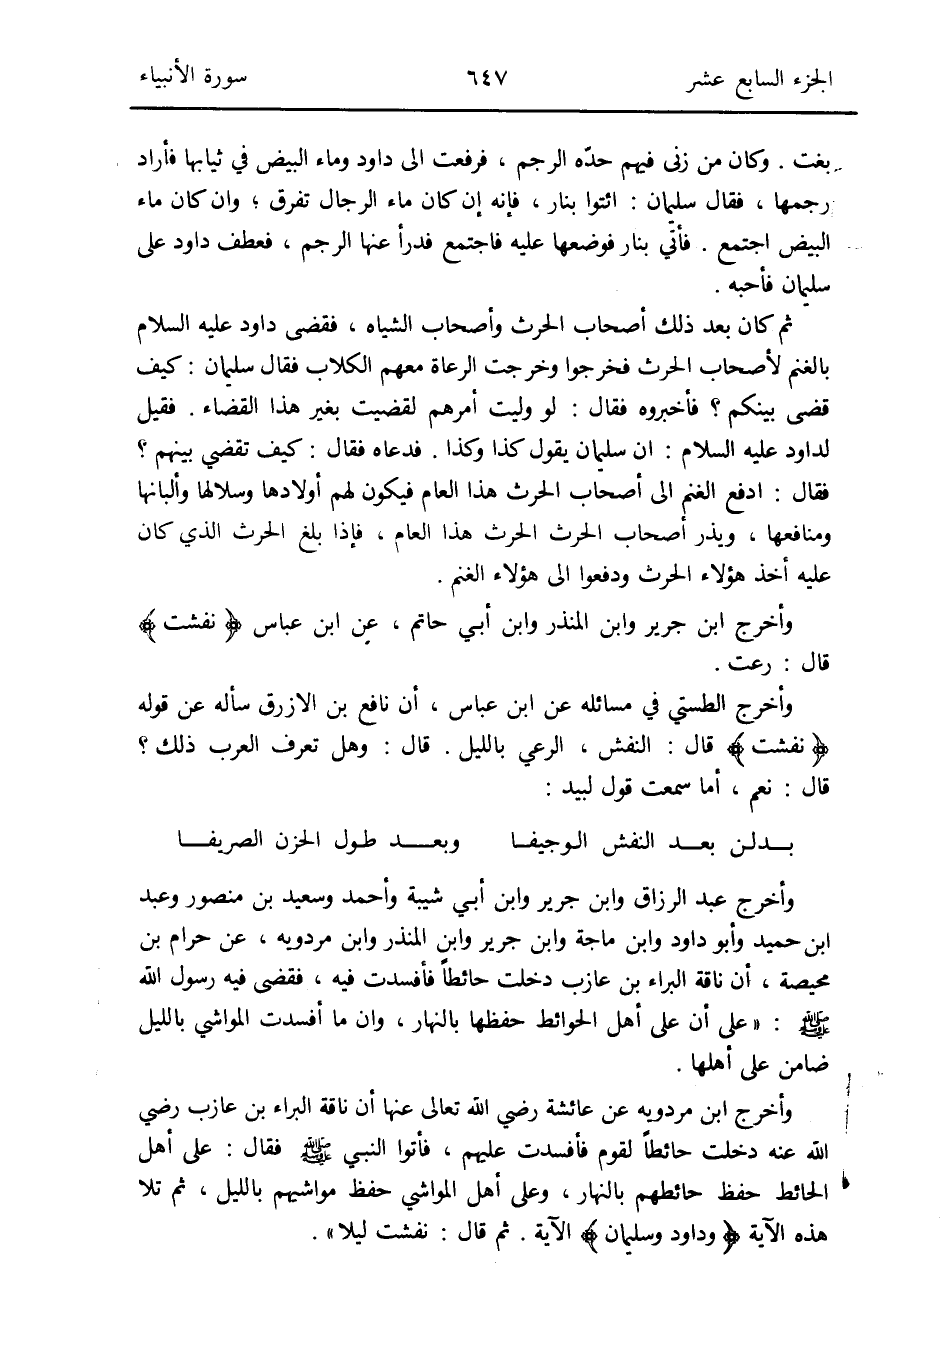 الجزء السابع عشر ٦٤٧ سورة الأنبياء
بغت . وكان من زنى فيهم حدّه الرجم ، فرفعت الى داود وماء البيض في ثيابها فأراد
رجمها ، فقال سليمان : ائتوا بنار ، فإنه إن كان ماء الرجال تفرق ؛ وان كان ماء
البيض اجتمع . فأتي بنار فوضعها عليه فاجتمع فدرأ عنها الرجم ، فعطف داود على
سليمان فأحبه .
ثم كان بعد ذلك أصحاب الحرث وأصحاب الشياه ، فقضى داود عليه السلام
بالغنم لأصحاب الحرث فخرجوا وخرجت الرعاة معهم الكلاب فقال سليمان : كيف
قضى بينكم ؟ فأخبروه فقال : لو وليت أمرهم لقضيت بغير هذا القضاء . فقيل
لداود عليه السلام : ان سليمان يقول كذا وكذا . فدعاه فقال : كيف تقضي بينهم ؟
فقال : ادفع الغنم الى أصحاب الحرث هذا العام فيكون لهم أولادها وسلالها وألبانها
ومنافعها ، ويذر أصحاب الحرث الحرث هذا العام ، فإذا بلغ الحرث الذي كان
عليه أخذ هؤلاء الحرث ودفعوا الى هؤلاء الغنم .
وأخرج ابن جرير وابن المنذر وابن أبي حاتم ، عن ابن عباس ﴿ نفشت ﴾
قال : رعت .
وأخرج الطستي في مسائله عن ابن عباس ، أن نافع بن الازرق سأله عن قوله
﴿ نفشت ﴾ قال : النفش ، الرعي بالليل . قال : وهل تعرف العرب ذلك ؟
قال : نعم ، أما سمعت قول لبيد :
بـدلـن بعـد النفش الـوجيفـا وبعـــد طـول الحزن الصريفــا
وأخرج عبد الرزاق وابن جرير وابن أبي شيبة وأحمد وسعيد بن منصور وعبد
ابن حميد وأبو داود وابن ماجة وابن جرير وابن المنذر وابن مردويه ، عن حرام بن
محيصة ، أن ناقة البراء بن عازب دخلت حائطاً فأفسدت فيه ، فقضى فيه رسول الله
ﷺ : « على أن على أهل الحوائط حفظها بالنهار ، وان ما أفسدت المواشي بالليل
ضامن على أهلها .
وأخرج ابن مردويه عن عائشة رضي الله تعالى عنها أن ناقة البراء بن عازب رضي
الله عنه دخلت حائطاً لقوم فأفسدت عليهم ، فأتوا النبي ﷺ فقال : على أهل
الحائط حفظ حائطهم بالنهار ، وعلى أهل المواشي حفظ مواشيهم بالليل ، ثم تلا
هذه الآية ﴿ وداود وسليمان ﴾ الآية . ثم قال : نفشت ليلا » .